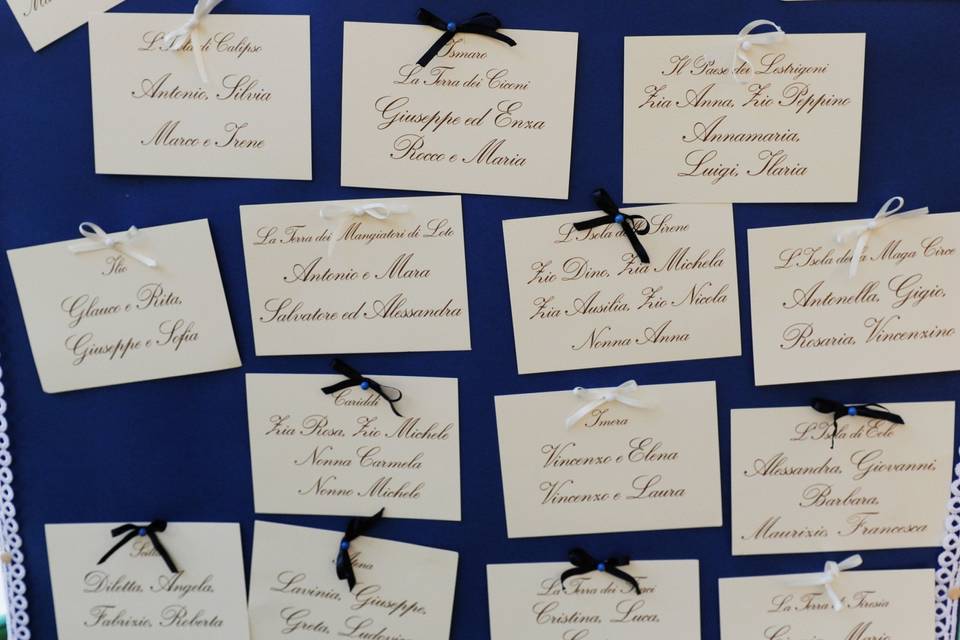 L'Isola di Calipso
Antonio, Silvia
Marco e Irene
Ismaro
La Terra dei Ciconi
Giuseppe ed Enza
Rocco e Maria
Il Paese dei Lestrigoni
Zia Anna, Zio Peppino
Annamaria,
Luigi, Ilaria
Ilio
Glauco e Rita,
Giuseppe e Sofia
La Terra dei Mangiatori di Loto
Antonio e Mara
Salvatore ed Alessandra
L'Isola delle Sirene
Zio Dino, Zia Michela
Zia Ausilia, Zio Nicola
Nonna Anna
L'Isola della Maga Circe
Antonella, Gigio,
Rosaria, Vincenzino
Cariddi
Zia Rosa, Zio Michele
Nonna Carmela
Nonno Michele
Imera
Vincenzo e Elena
Vincenzo e Laura
L'Isola di Eolo
Alessandra, Giovanni,
Barbara,
Maurizio, Francesca
Diletta, Angela,
Fabrizio, Roberta
Lavinia, Giuseppe,
Greta, Ludovica
La Terra dei
Cristina, Luca,
La Terra di Tiresia